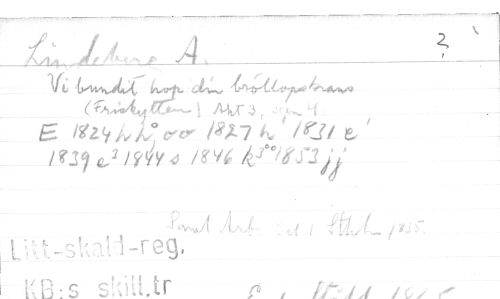 Lindeberg A. ?
Vi bundit hop din bröllopskrans
(Friskytten) Akt 3, scen 4.
E 1824 h h, oo 1827 h 1831 e
1839 e³ 1844 s 1846 k³⁰⁰ 1853 jj
Saml. Arb. Sthlm 1835.
Litt-skald-reg.
KB:s skill.tr